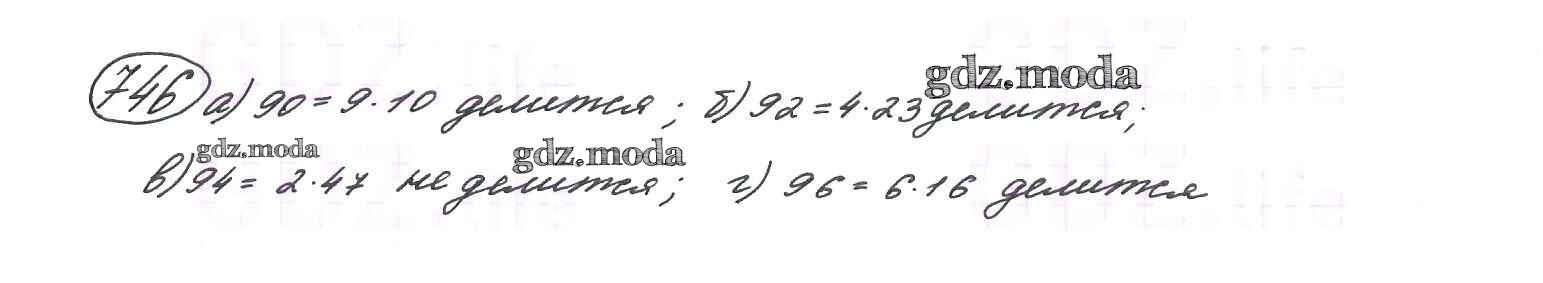 746 а) 90 = 9·10 делится; б) 92 = 4·23 делится;
в) 94 = 2·47 не делится; г) 96 = 6·16 делится
gdz.moda
gdz.moda
gdz.moda